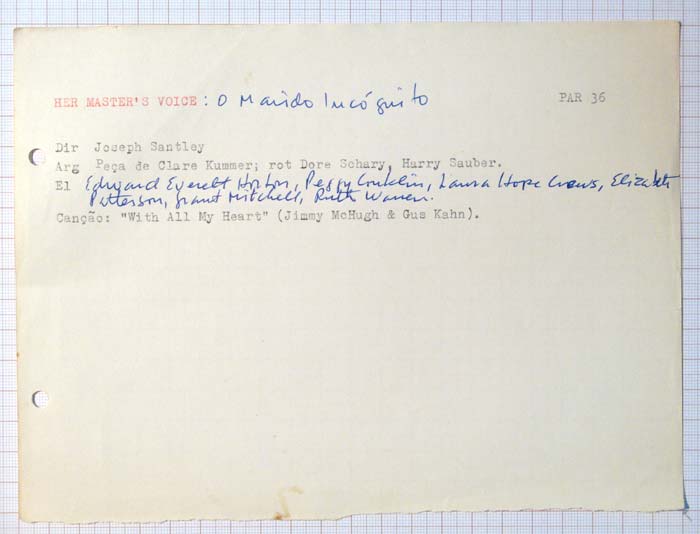 HER MASTER'S VOICE : O Marido Incógnito PAR 36
Dir Joseph Santley
Arg Peça de Clare Kummer; rot Dore Schary, Harry Sauber.
El Edward Everett Horton, Peggy Conklin, Laura Hope Crews, Elizabeth
Patterson, Grant Mitchell, Ruth Warren.
Canção: "With All My Heart" (Jimmy McHugh & Gus Kahn).